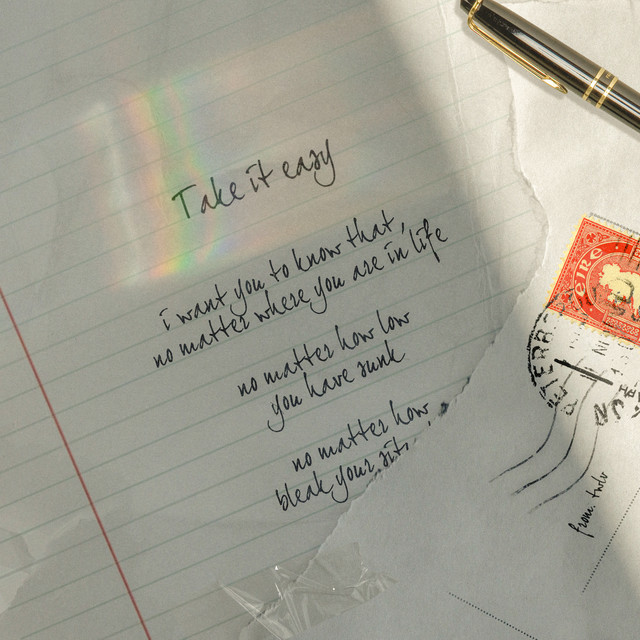 Take it easy
i want you to know that,
no matter where you are in life
no matter how low
you have sunk
no matter how
bleak your
éire
from